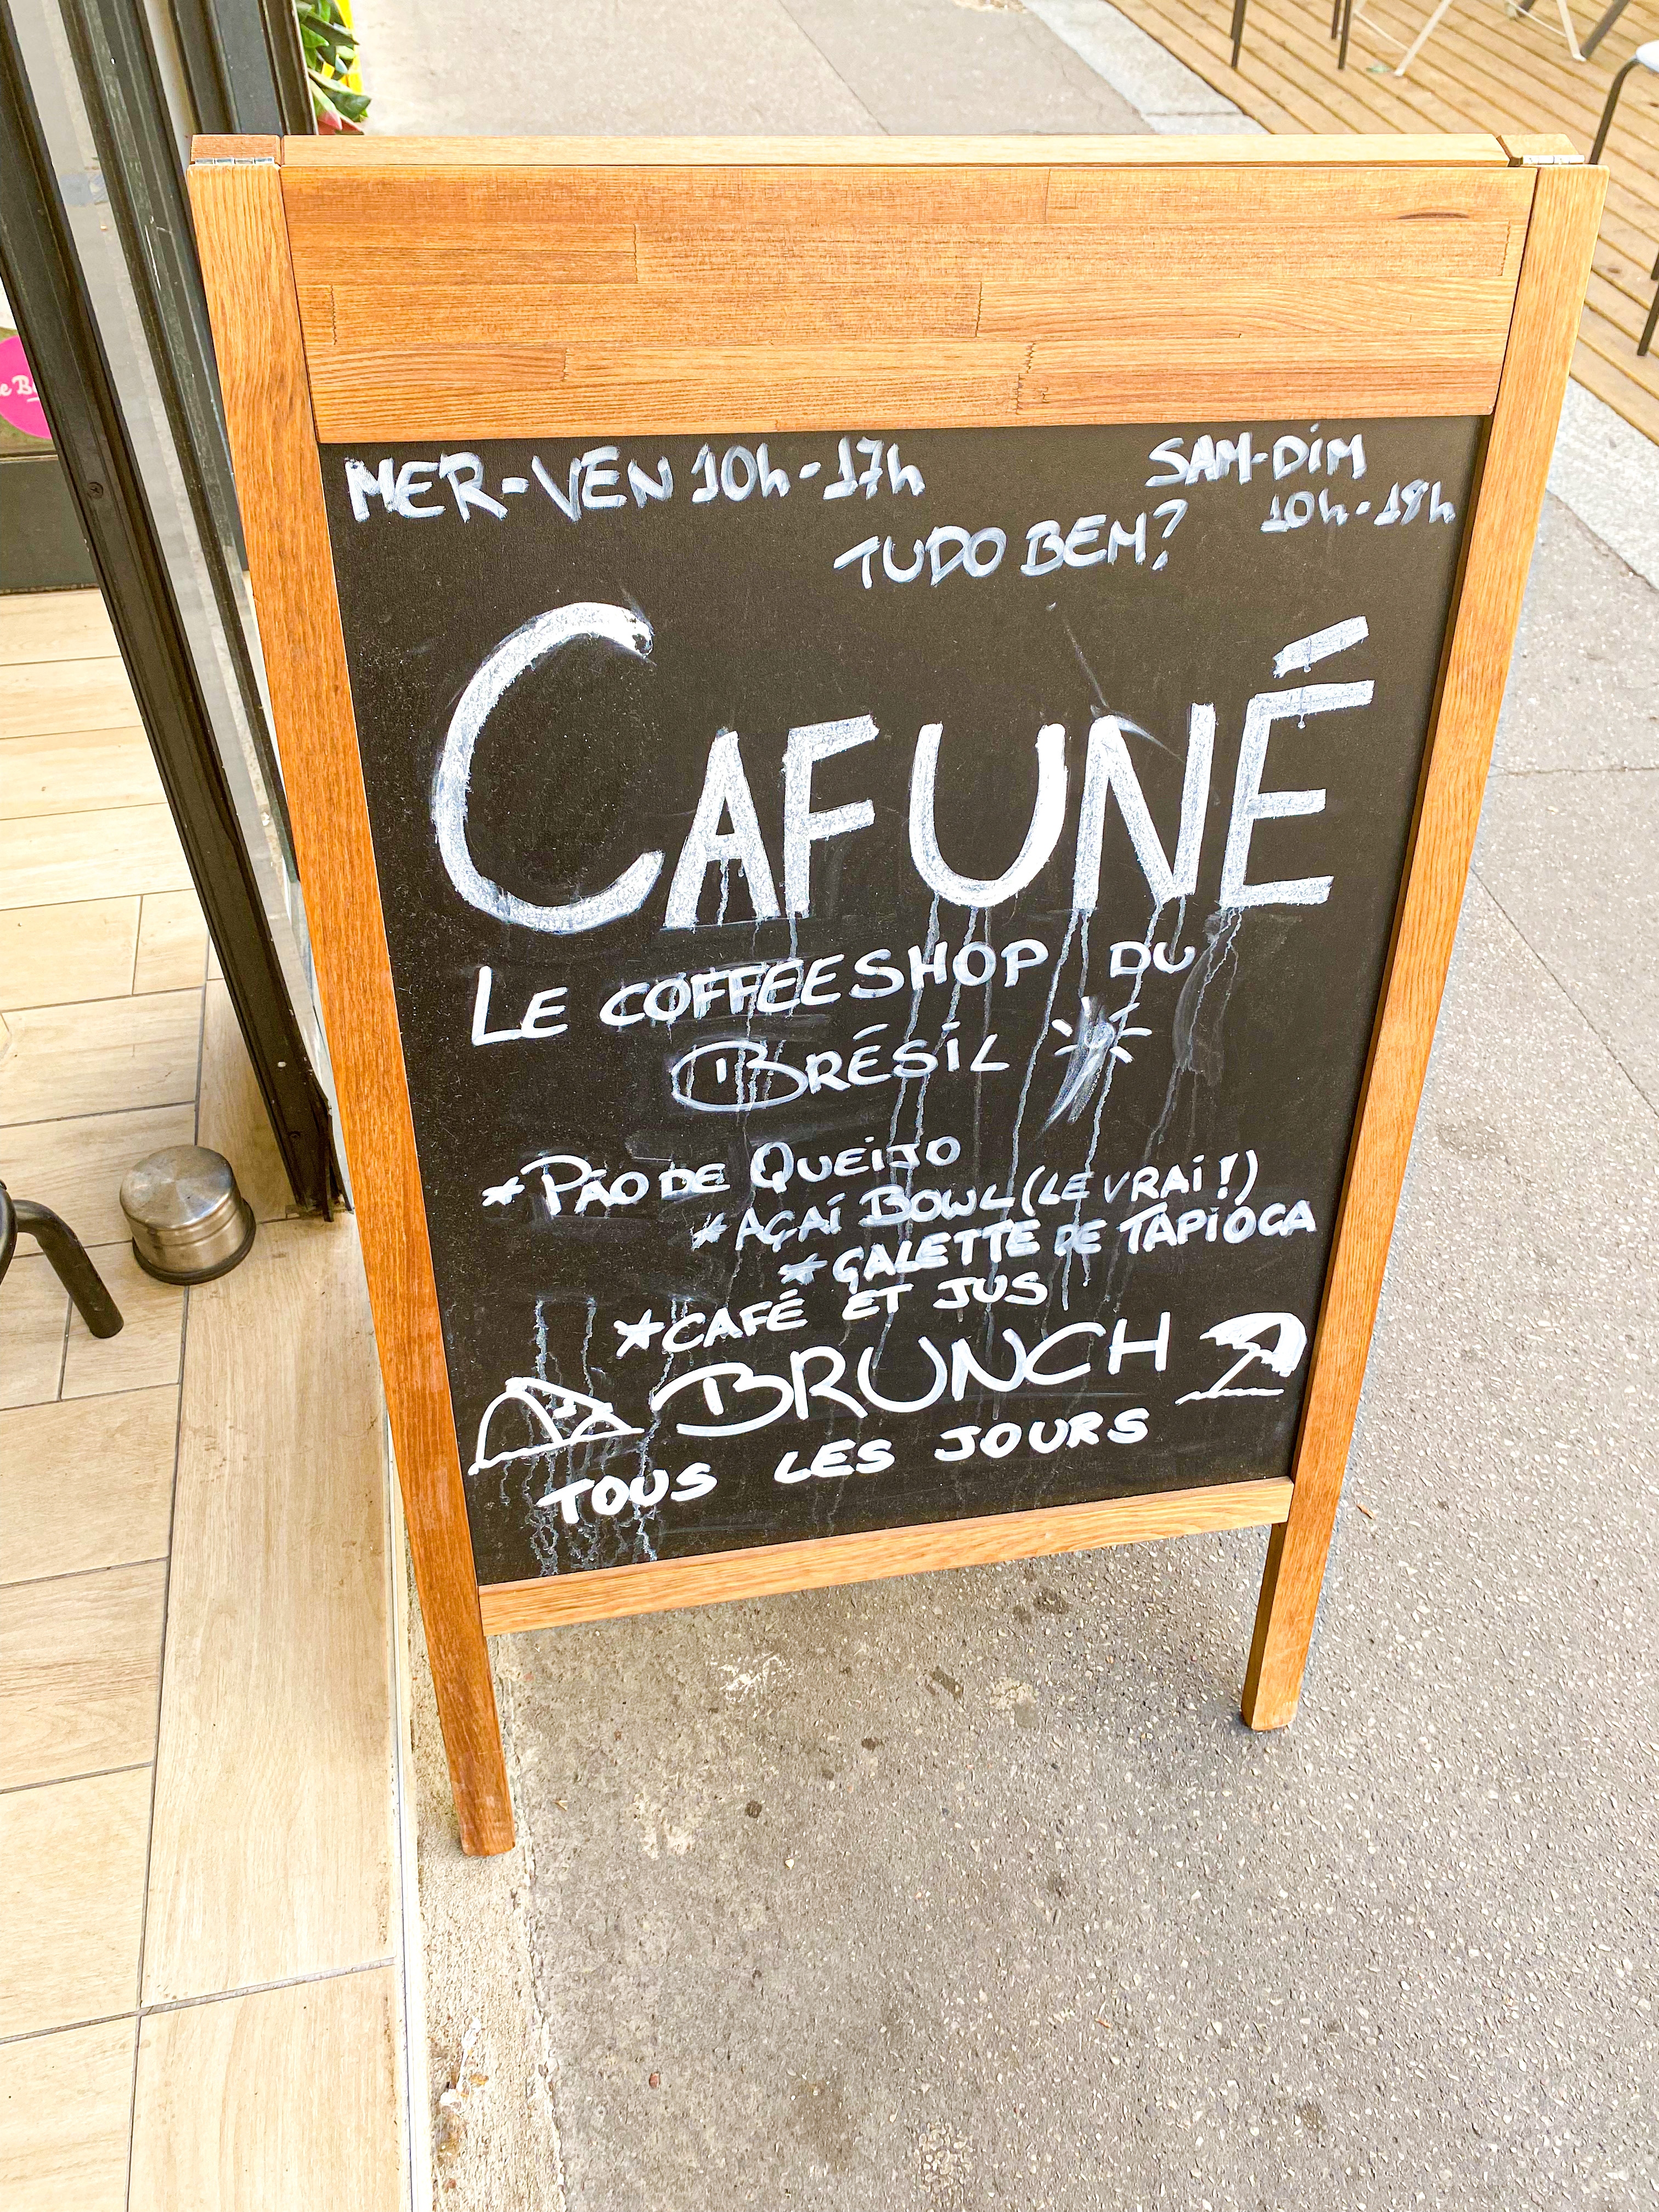 MER-VEN 10h-17h
SAM-DIM
10h-18h
TUDO BEM?
CAFUNÉ
LE COFFEESHOP DU
BRÉSIL
*PÃO DE QUEIJO
*AÇAÍ BOWL (LE VRAI!)
*GALETTE DE TAPIOCA
*CAFÉ ET JUS
BRUNCH
TOUS LES JOURS